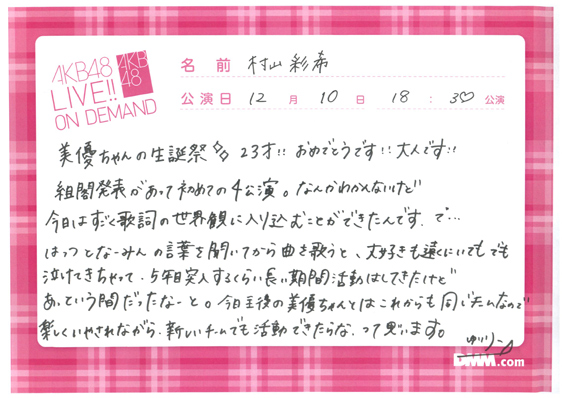 AKB48
LIVE!!
ON DEMAND
AKB
48
名前 村山彩希
公演日 12月10日 18:30 公演
美優ちゃんの生誕祭 23才!! おめでとうです!! 大人です!!
組閣発表があって初めての4公演。なんかわかんないけど
今日はすごく歌詞の世界観に入り込むことができたんです。で…
はっつとなーみんの言葉を聞いてから曲を歌うと、大好きも遠くにいてもでも
泣けてきちゃって、5年目突入するくらい長い期間活動はしてきたけど
あっという間だったなーと。今日主役の美優ちゃんとはこれからも同じチームなので
楽しくいやされながら、新しいチームでも活動できたらな、って思います。
ゆいりー
DMM.com